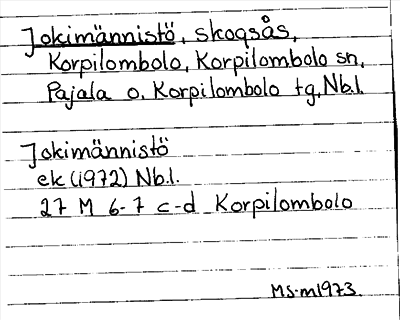 Jokimännistö, skogsås,
Korpilombolo, Korpilombolo sn,
Pajala o. Korpilombolo tg, Nb.l.
Jokimännistö
ek (1972) Nb.l.
27 M 6-7 c-d Korpilombolo
MS-m1973.